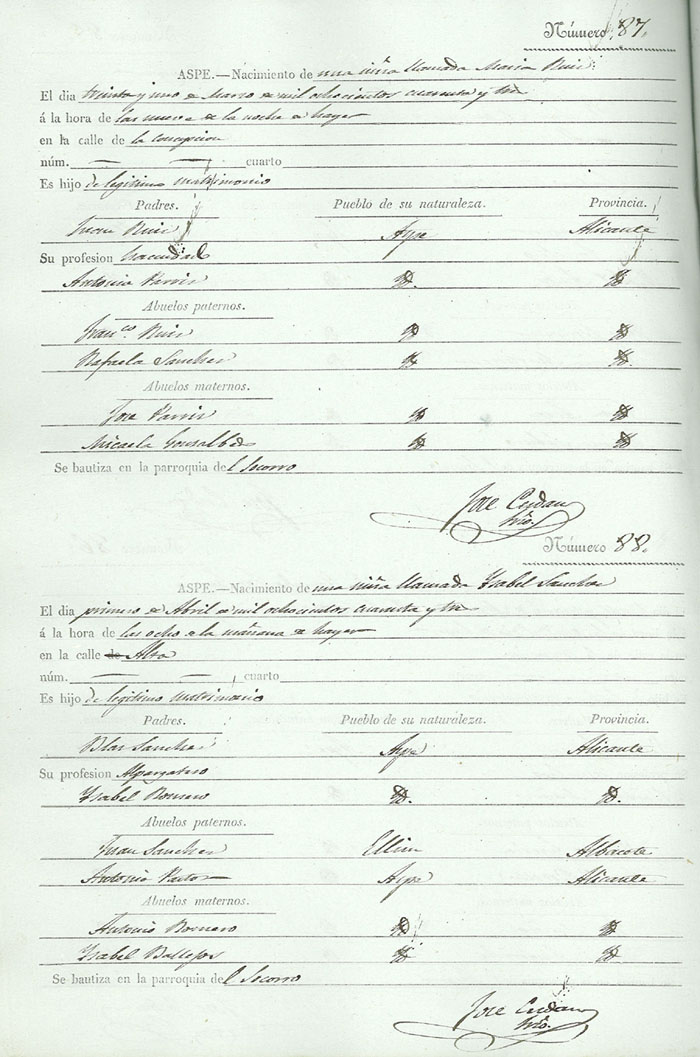 Número 87.
ASPE.—Nacimiento de una niña llamada Maria Ruiz
El dia treinta y uno de Marzo de mil ochocientos cuarenta y tres
á la hora de las nueve de la noche de hayer
en la calle de la Concepcion
núm. — — cuarto
Es hijo de legitimo matrimonio
Padres. Pueblo de su naturaleza. Provincia.
Ruiz Aspe Alicante
Su profesion
Antonia id. id.
Abuelos paternos.
Franco. Ruiz id. id.
Rafaela Sanchez id. id.
Abuelos maternos.
Jose id. id.
Micaela Gonzalbez id. id.
Se bautiza en la parroquia del Socorro
Jose Cerdan
Srio.
Número 88.
ASPE.—Nacimiento de una niña llamada Ysabel Sanchez
El dia primero de Abril de mil ochocientos cuarenta y tres
á la hora de las ocho de la mañana de hayer
en la calle de Alta
núm. — — cuarto
Es hijo de legitimo matrimonio
Padres. Pueblo de su naturaleza. Provincia.
Blas Sanchez Aspe Alicante
Su profesion Alpargatero
Ysabel id. id.
Abuelos paternos.
Juan Sanchez Ellin Albacete
Antonia Pastor Aspe Alicante
Abuelos maternos.
Antonio id. id.
Ysabel Ballejos id. id.
Se bautiza en la parroquia del Socorro
Jose Cerdan
Srio.